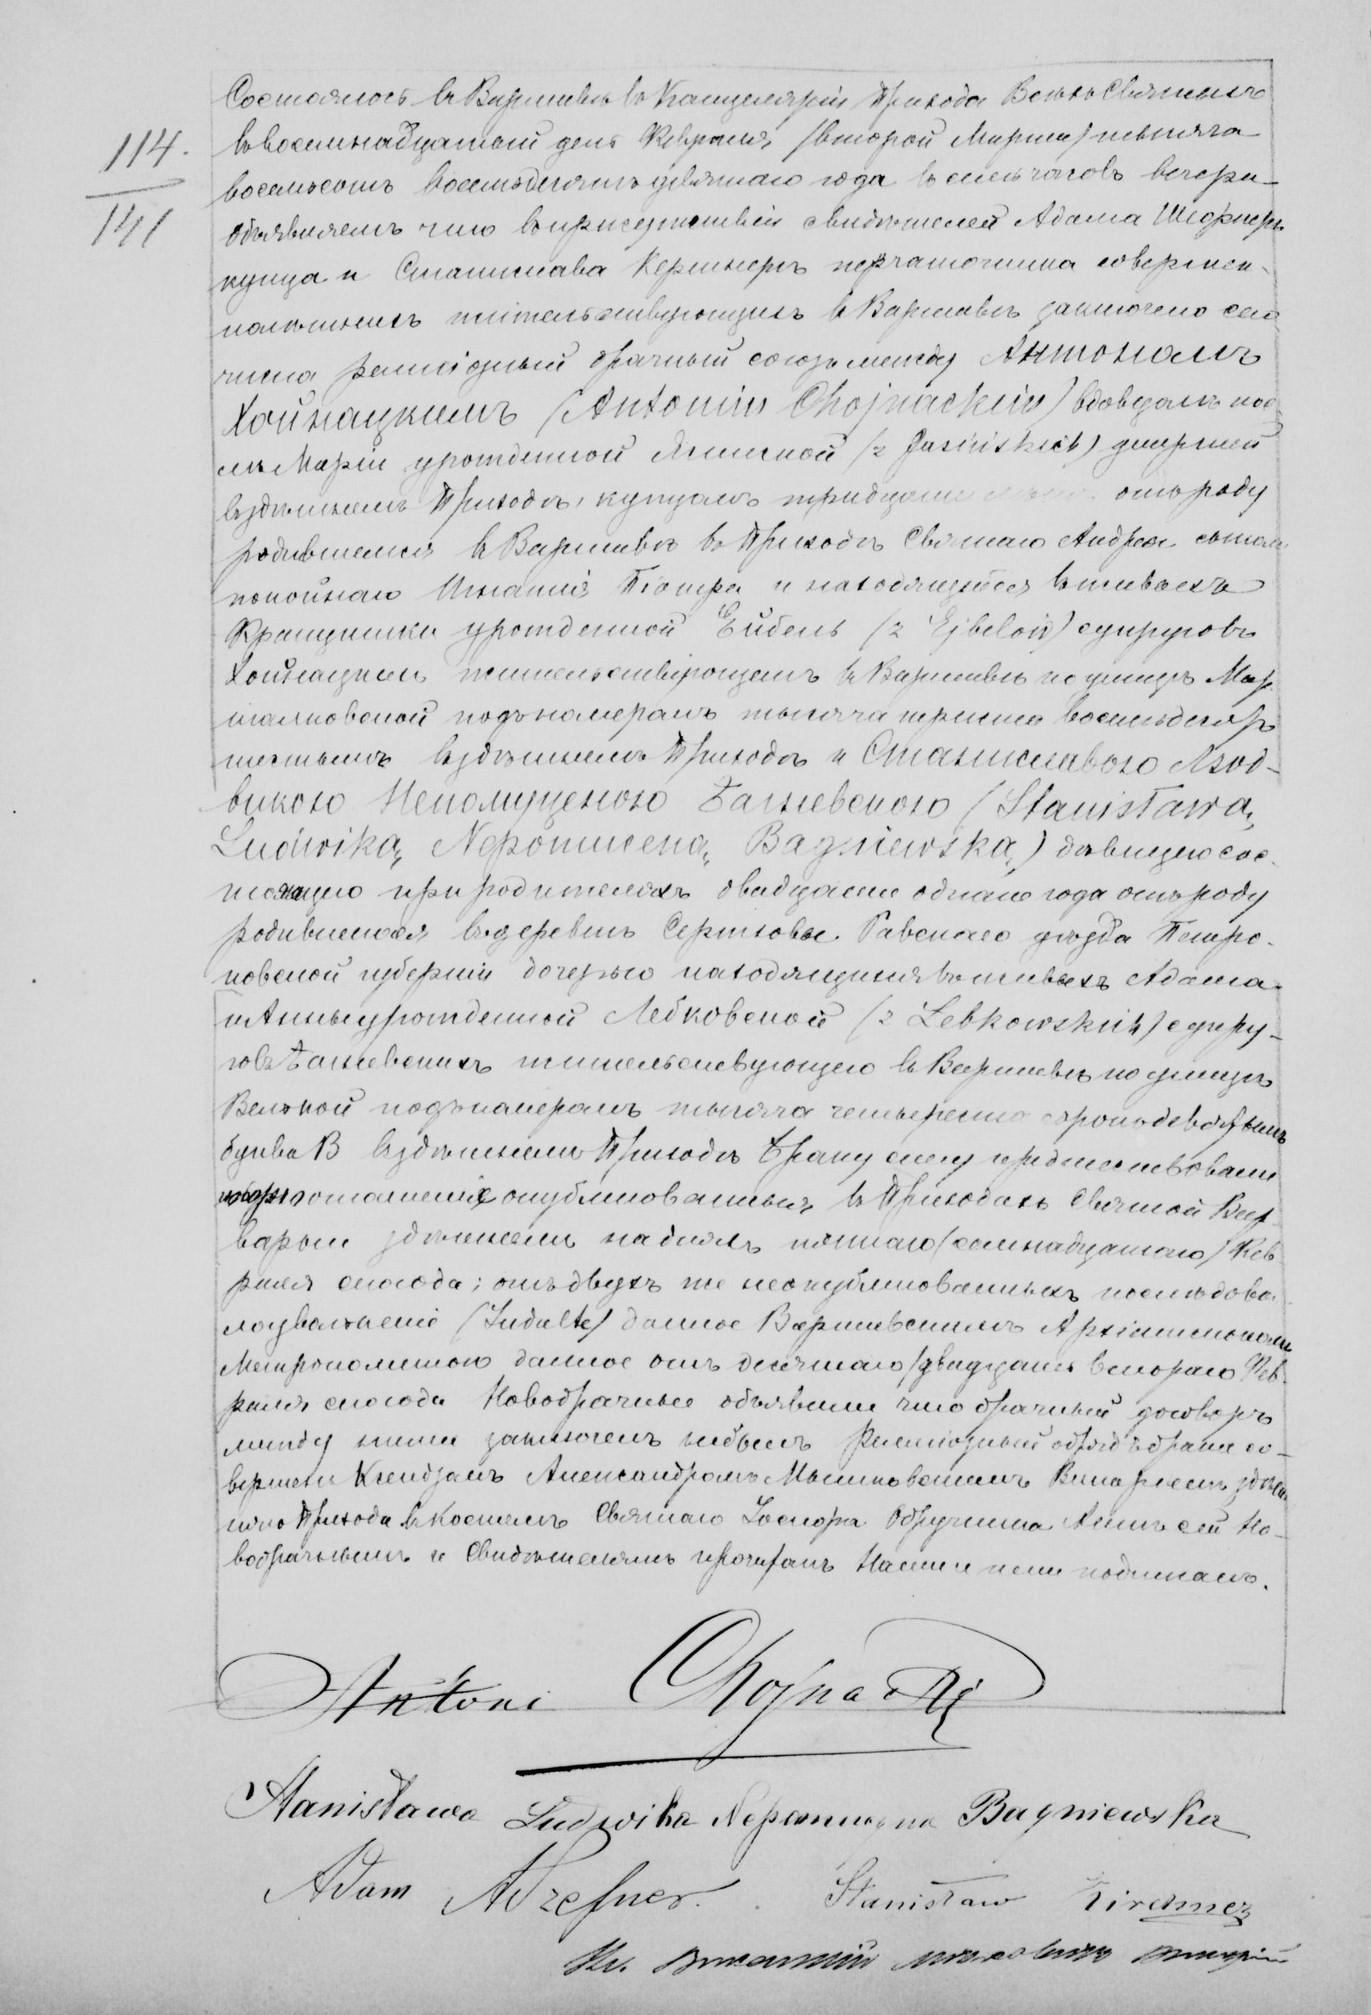 114.
141
Состоялось въ Варшавѣ въ Канцеляріи Прихода Всѣхъ Святыхъ
въ восемнадцатый день Февраля /второй Марта/ тысяча
восемьсотъ восемьдесятъ девятаго года въ семь часовъ вечера
Объявляемъ что въ присутствіи свидѣтелей Адама
купца и Станислава Кершнеръ перчаточника совершен-
нолѣтнихъ жительствующихъ въ Варшавѣ заключено сего
числа религіозный брачный союзъ между Антоніемъ
Хойнацкимъ (Antonim Chojnackim) вдовцомъ пос-
лѣ Маріи урожденной Ясинской (z Jasińskich) умершей
въ здѣшнемъ Приходѣ, купцомъ тридцати отъ роду
родившемся въ Варшавѣ въ Приходѣ Святаго Андрея сыномъ
покойнаго Игнатія Піотра и находящейся въ живыхъ
Францишки урожденной Ейбель (z Ejbelów) супруговъ
Хойнацкихъ жительствующемъ въ Варшавѣ по улицѣ Мар
шалковской подъ номеромъ тысяча триста восемьдесятъ
шестымъ въ здѣшнемъ Приходѣ и Станиславою Люд-
викою Непомуценою Багневскою (Stanisławą,
Ludwiką, Nepomuceną, Bagniewską,) дѣвицею сос-
тоящею при родителяхъ двадцати одного года отъ роду
родившеюся въ деревнѣ Равскаго уѣзда Петро-
ковской губерніи дочерью находящихся въ живыхъ Адама
и Анны урожденной Лебковской (z Lebkowskich) супру-
говъ Багневскихъ жительствующею въ Варшавѣ по улицѣ
Велькой подъ номеромъ тысяча четыреста сорокъ девятымъ
буква В въ здѣшнемъ Приходѣ Браку сему предшествовали
оглашенія опубликованныя въ Приходахъ Святой Вар-
вары и здѣшнемъ на дняхъ пятаго /семнадцатаго/ Фев
раля сего года; отъ двухъ же неопубликованныхъ послѣдова
ло увольненіе (Indulte) данное Варшавскимъ Архіепископомъ
Митрополитою данное отъ десятаго /двадцать втораго Фев-
раля сего года Новобрачные объявили что брачный договоръ
между ними заключенъ небылъ Религіозный обрядъ брака со-
вершенъ Ксендзомъ Александромъ Викаріемъ здѣш
няго Прихода въ Костелѣ Святаго Іосифа Обручника Актъ сей Но-
вобрачнымъ и Свидѣтелямъ прочитанъ Нами и ними подписанъ.
Antoni Chojnacki
Stanisława Ludwika Nepomucyna Bagniewska
Adam Stanisław Kirchner
Кс.